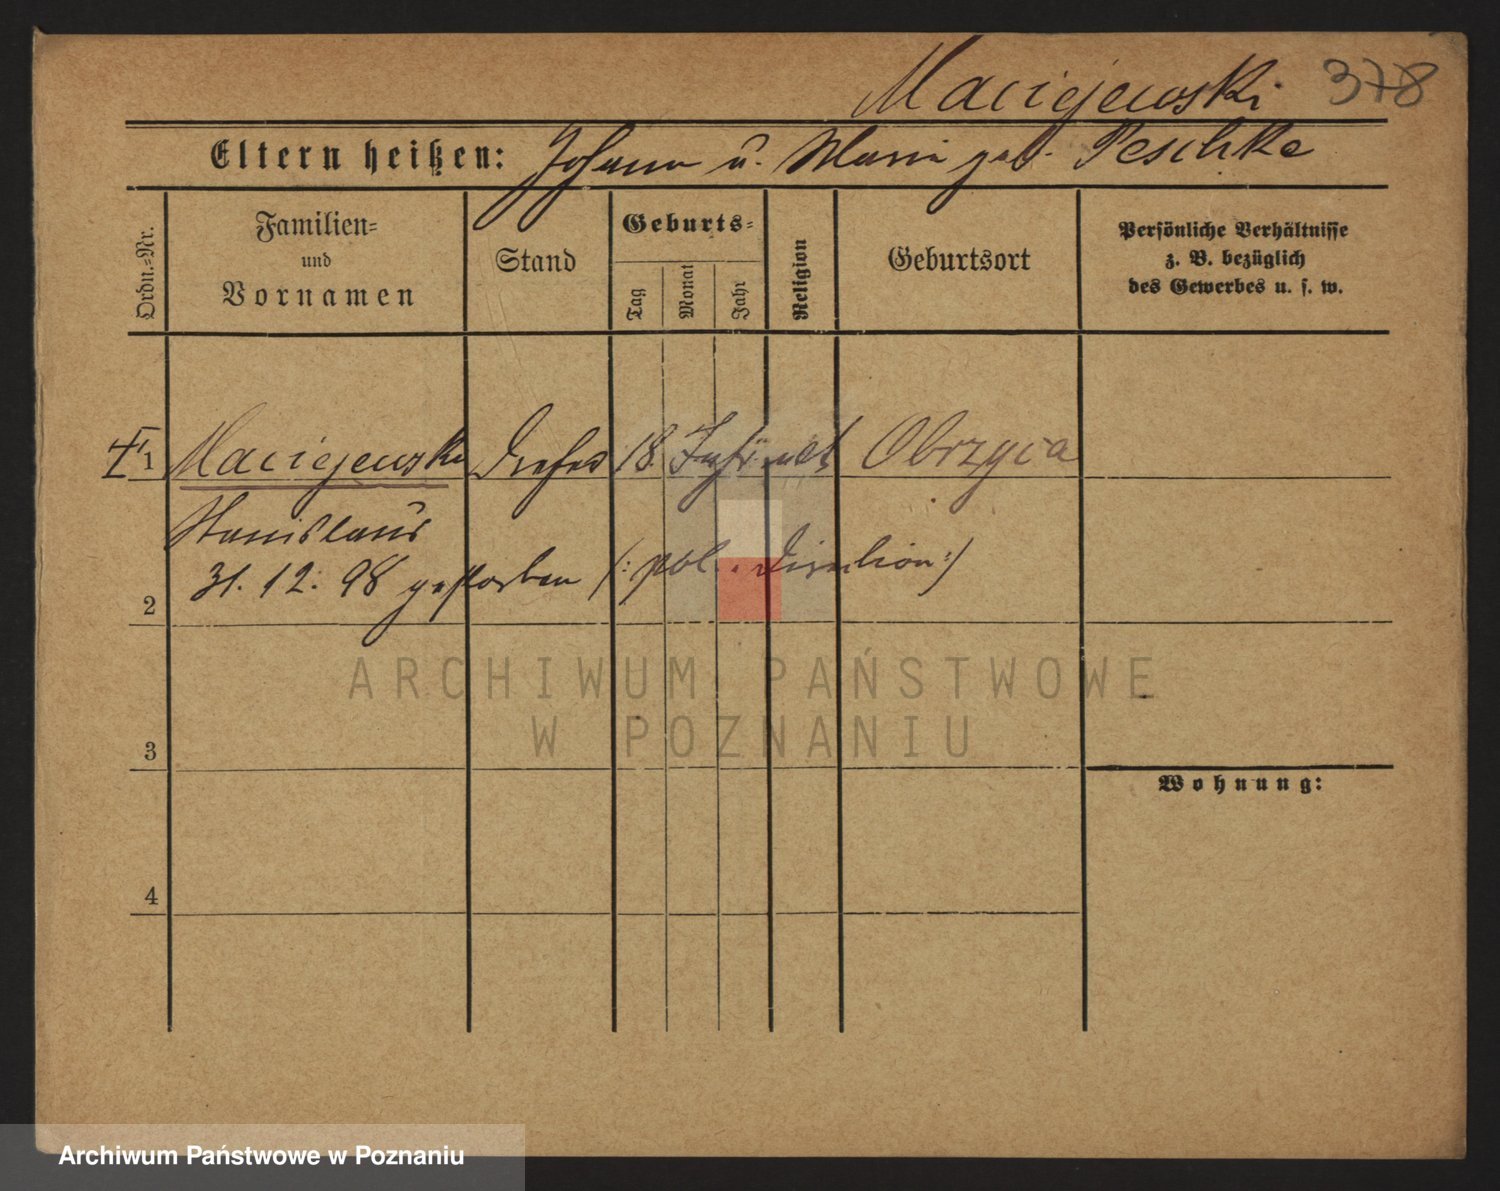 Maciejewski 378
Eltern heißen: Johann u. Maria geb. Peschke
Ordn.-Nr.
Familien- und Vornamen
Stand
Geburts-
Tag
Monat
Jahr
Religion
Geburtsort
Persönliche Verhältnisse
z. B. bezüglich
des Gewerbes u. s. w.
1 Maciejewski 18. Obrzycia
Stanislaus
31. 12. 98 gestorben (: pol. Direktion :)
2
3
4
Wohnung:
ARCHIWUM PAŃSTWOWE
W POZNANIU
Archiwum Państwowe w Poznaniu